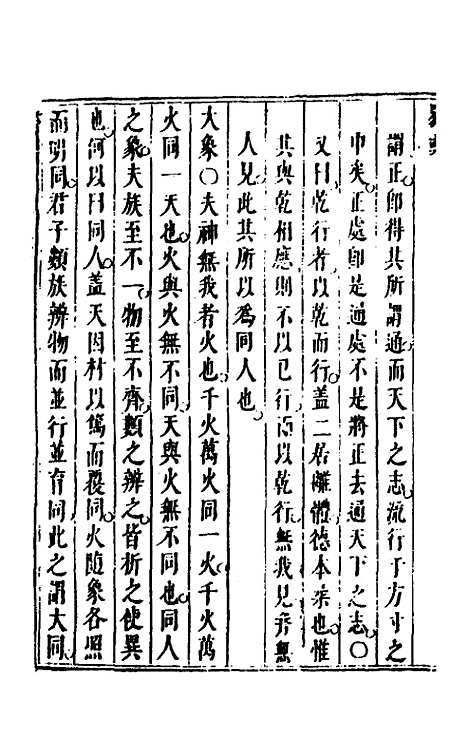 謂正卽得其所謂通而天下之志流行于方寸之
中矣正處卽是通處不是將正去通天下之志〇
又曰乾行者以乾而行蓋二居離體德本柔也惟
其與乾相應則不以已行而以乾行無我見斉無
人見此其所以為同人也
大象〇夫神無我者火也千火萬火同一火千火萬
火同一天也火與火無不同天與火無不同也同人
之象夫族至不一物至不齊類之辨之皆析之使異
也何以曰同人蓋天因材以篤而覆同火隨象各照
而明同君子類族辨物而並行並育同此之謂大同